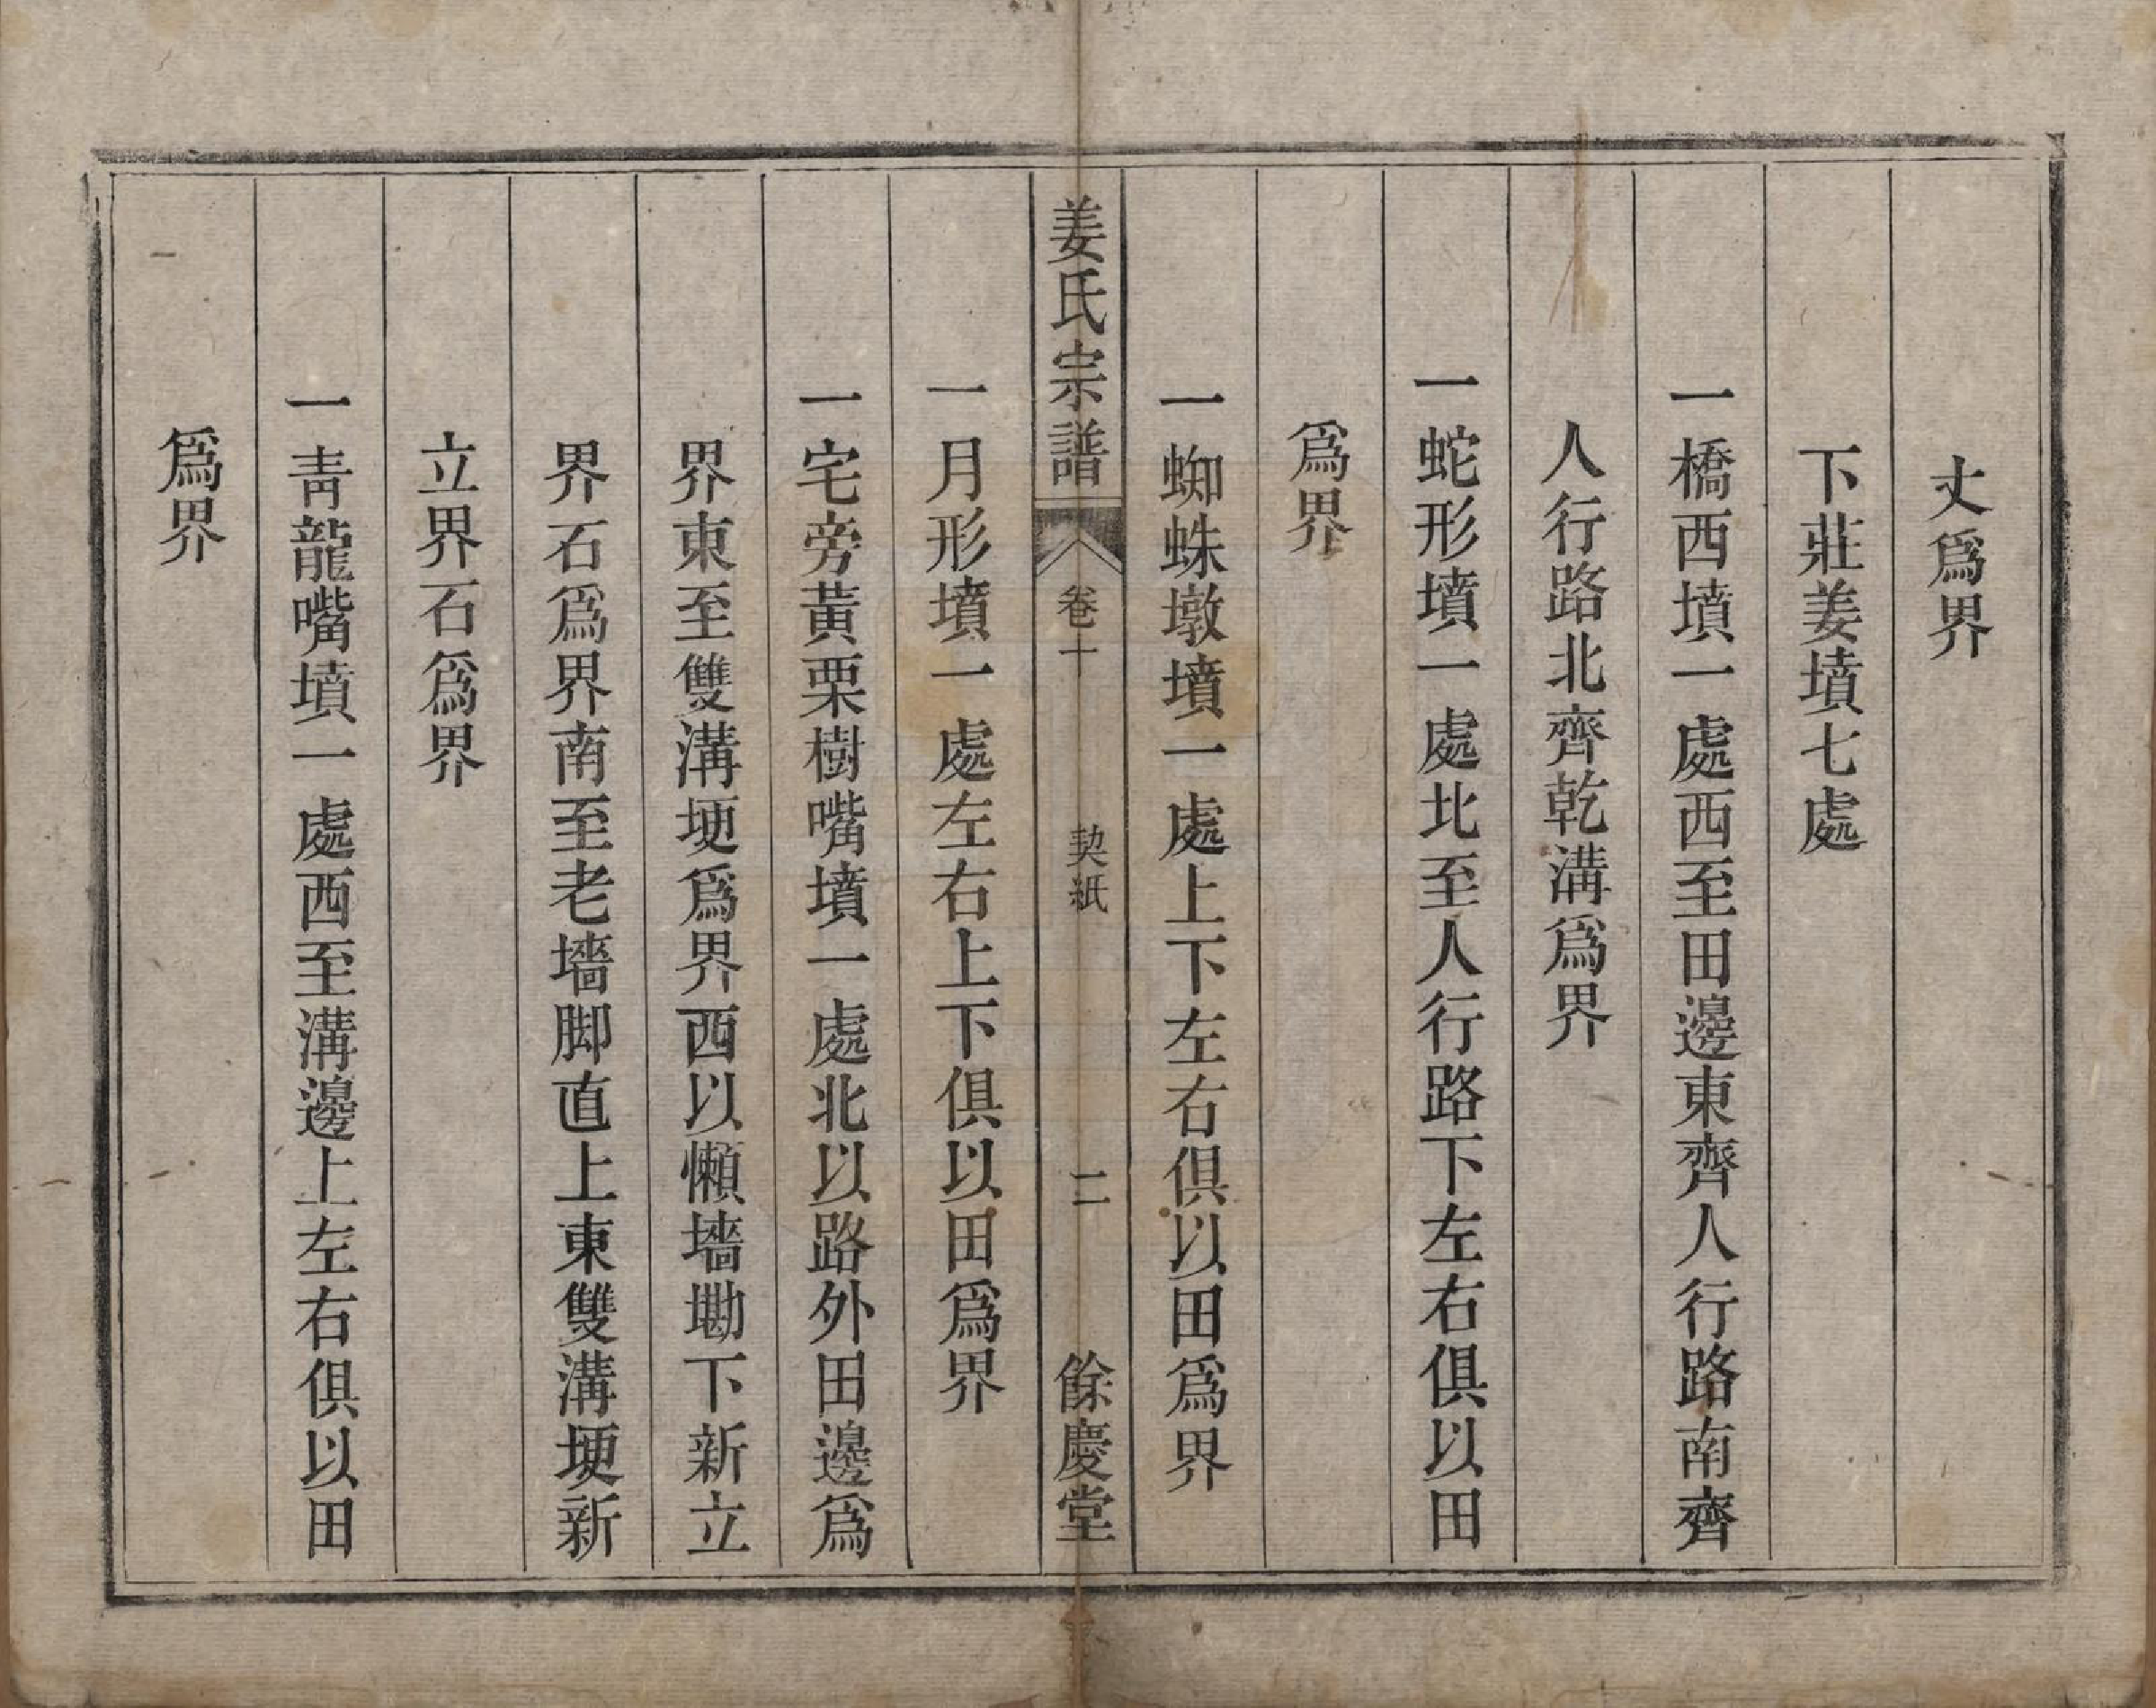 丈爲界
下莊姜墳七處
一橋西墳一處西至田邊東齊人行路南齊
人行路北齊乾溝爲界
一蛇形墳一處北至人行路下左右俱以田
爲界
一蜘蛛墩墳一處上下左右俱以田爲界
姜氏宗譜 卷十 契紙 二 餘慶堂
一月形墳一處左右上下俱以田爲界
一宅旁黃栗樹嘴墳一處北以路外田邊爲
界東至雙溝埂爲界西以懶墻墈下新立
界石爲界南至老墻脚直上東雙溝埂新
立界石爲界
一靑龍嘴墳一處西至溝邊上左右俱以田
爲界